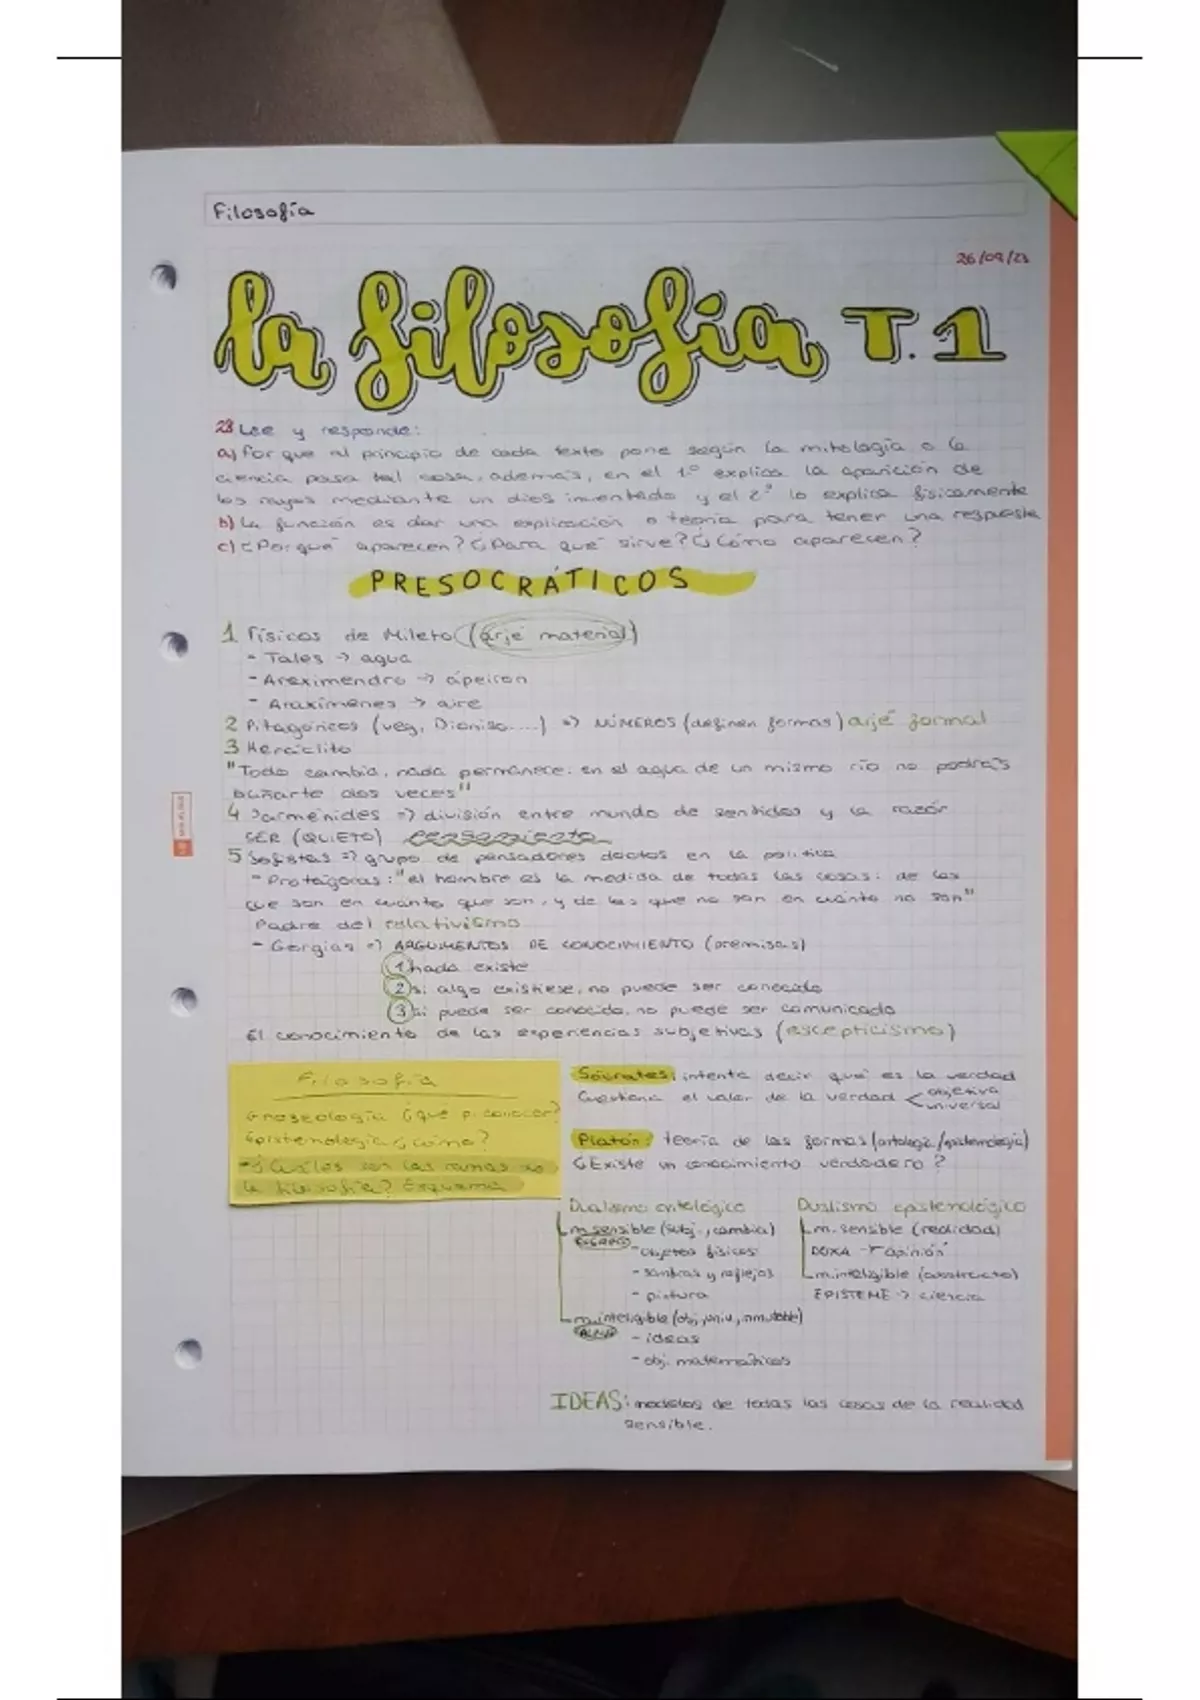 Filosofía
26/09/23
la filosofía T.1
28 Lee y responde:
a) Por que al principio de cada texto pone según la mitología o la
ciencia pasa tal cosa, además, en el 1º explica la aparición de
los rayos mediante un dios inventado y el 2º lo explica físicamente
b) La función es dar una explicación o teoría para tener una respuesta
c) ¿Por qué aparecen? ¿Para qué sirve? ¿Cómo aparecen?
PRESOCRÁTICOS
1 Físicos de Mileto (arjé material)
- Tales → agua
- Anaximendro → ápeiron
- Anaxímenes → aire
2 Pitagóricos (veg, Dioniso....) => NÚMEROS (definen formas) arjé formal
3 Heráclito
"Todo cambia, nada permanece. en el agua de un mismo río no podrás
bañarte dos veces"
4 Parménides => división entre mundo de sentidos y la razón
SER (QUIETO) pensamiento
5 Sofistas => grupo de pensadores doctos en la política
- Protágoras: "el hombre es la medida de todas las cosas: de las
que son en cuanto que son, y de las que no son en cuanto no son"
Padre del relativismo
- Gorgias => ARGUMENTOS DE CONOCIMIENTO (premisas)
1 nada existe
2 si algo existiese, no puede ser conocido
3 si puede ser conocido, no puede ser comunicado
El conocimiento de las experiencias subjetivas (escepticismo)
Filosofía
Gnoseología ¿qué p. conocer?
Epistemología ¿cómo?
- ¿Cuáles son las ramas de
la filosofía? Esquema
Sócrates: intenta decir qué es la verdad
Cuestiona el valor de la verdad < objetiva
universal
Platón: teoría de las formas (ontología/epistemología)
¿Existe un conocimiento verdadero?
Dualismo ontológico
m. sensible (subj., cambia)
CUERPO
- objetos físicos
- sombras y reflejos
- pintura
m. inteligible (obj, univ, inmutable)
ALMA
- ideas
- obj. matemáticos
Dualismo epistemológico
m. sensible (realidad)
DOXA → opinión
m. inteligible (abstracto)
EPISTEME → ciencia
IDEAS: modelos de todas las cosas de la realidad
sensible.